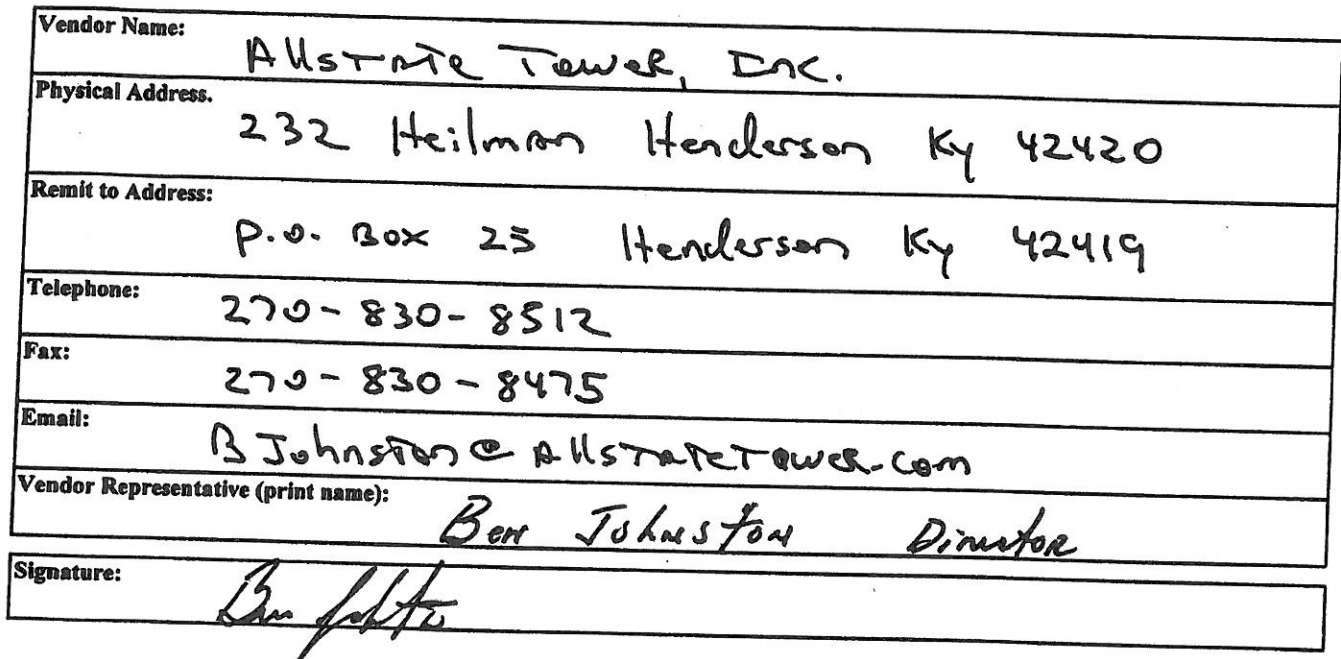 Vendor Name:
Allstate Tower, Inc.
Physical Address.
232 Heilman Henderson Ky 42420
Remit to Address:
P.O. Box 25 Henderson Ky 42419
Telephone:
270-830-8512
Fax:
270-830-8475
Email:
BJohnston@Allstatetower.com
Vendor Representative (print name):
Ben Johnston Director
Signature:
Ben Johnston